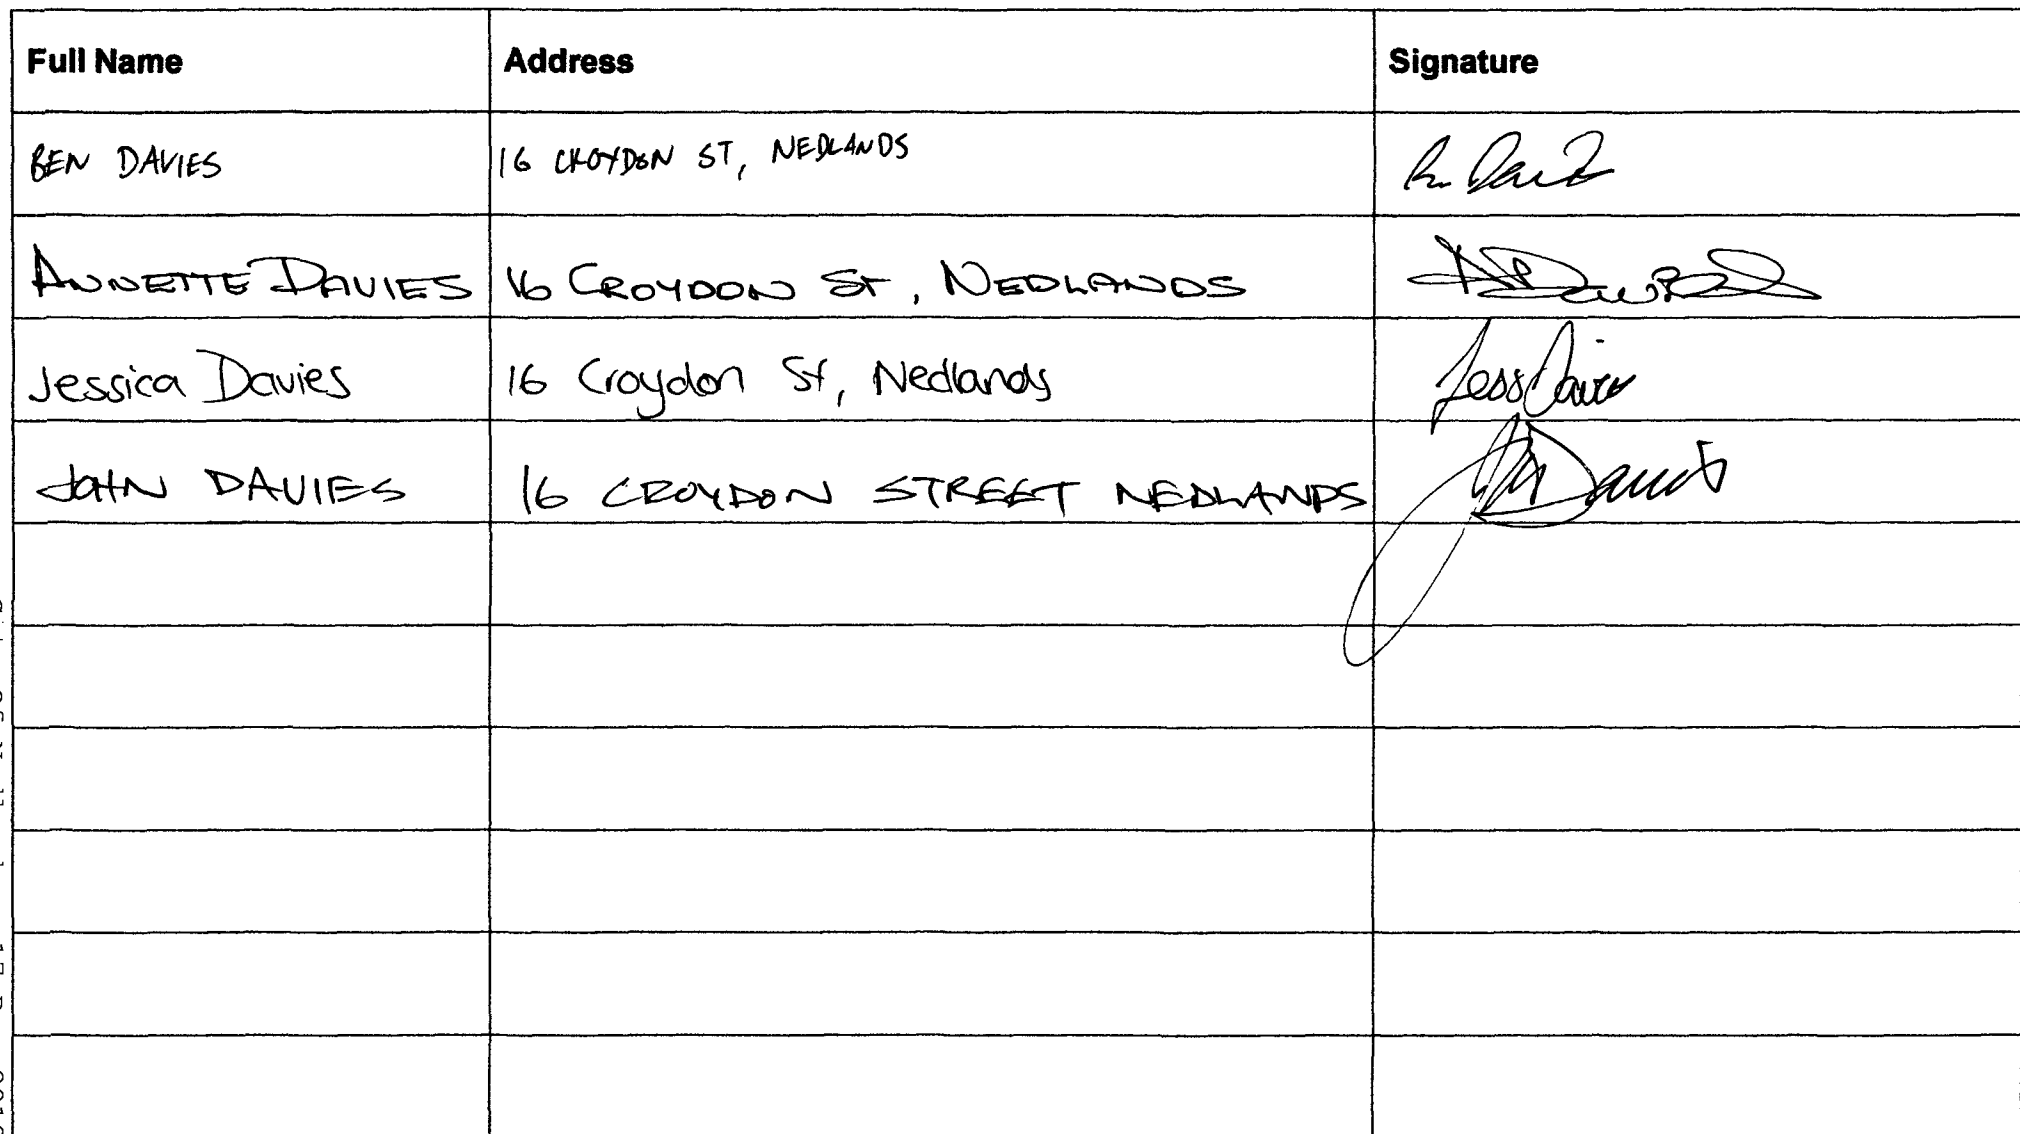 Full Name Address Signature
BEN DAVIES 16 CROYDON ST, NEDLANDS
ANNETTE DAVIES 16 CROYDON ST, NEDLANDS
Jessica Davies 16 Croydon St, Nedlands Jess Davies
JOHN DAVIES 16 CROYDON STREET NEDLANDS